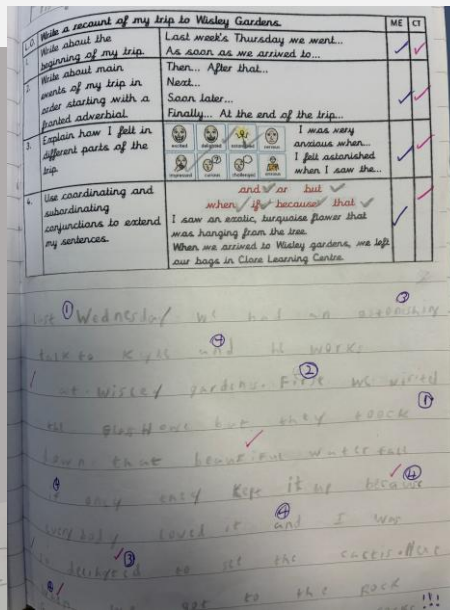 L.O. Write a recount of my trip to Wisley Gardens.
ME CT
1. Write about the beginning of my trip.
Last week's Thursday we went...
As soon as we arrived to...
2. Write about main events of my trip in order starting with a fronted adverbial.
Then... After that...
Next...
Soon later...
Finally... At the end of the trip...
3. Explain how I felt in different parts of the trip.
excited delighted astonished anxious
impressed curious challenged nervous
I was very anxious when...
I felt astonished when I saw the...
4. Use coordinating and subordinating conjunctions to extend my sentences.
and or but
when if because that
I saw an exotic, turquoise flower that was hanging from the tree.
When we arrived to Wisley gardens, we left our bags in Clore Learning Centre.
last ① Wednesday we had an astonishing ③
talk to Kyle and ④ he works
at wisley gardens. First ② we visited
the glasHowe but they toock ①
down that beautiful water fall
④ only kepe it up because ④
everybody loved it and ④ I was
so delighted ③ to see the
④ got to the rock
!!!